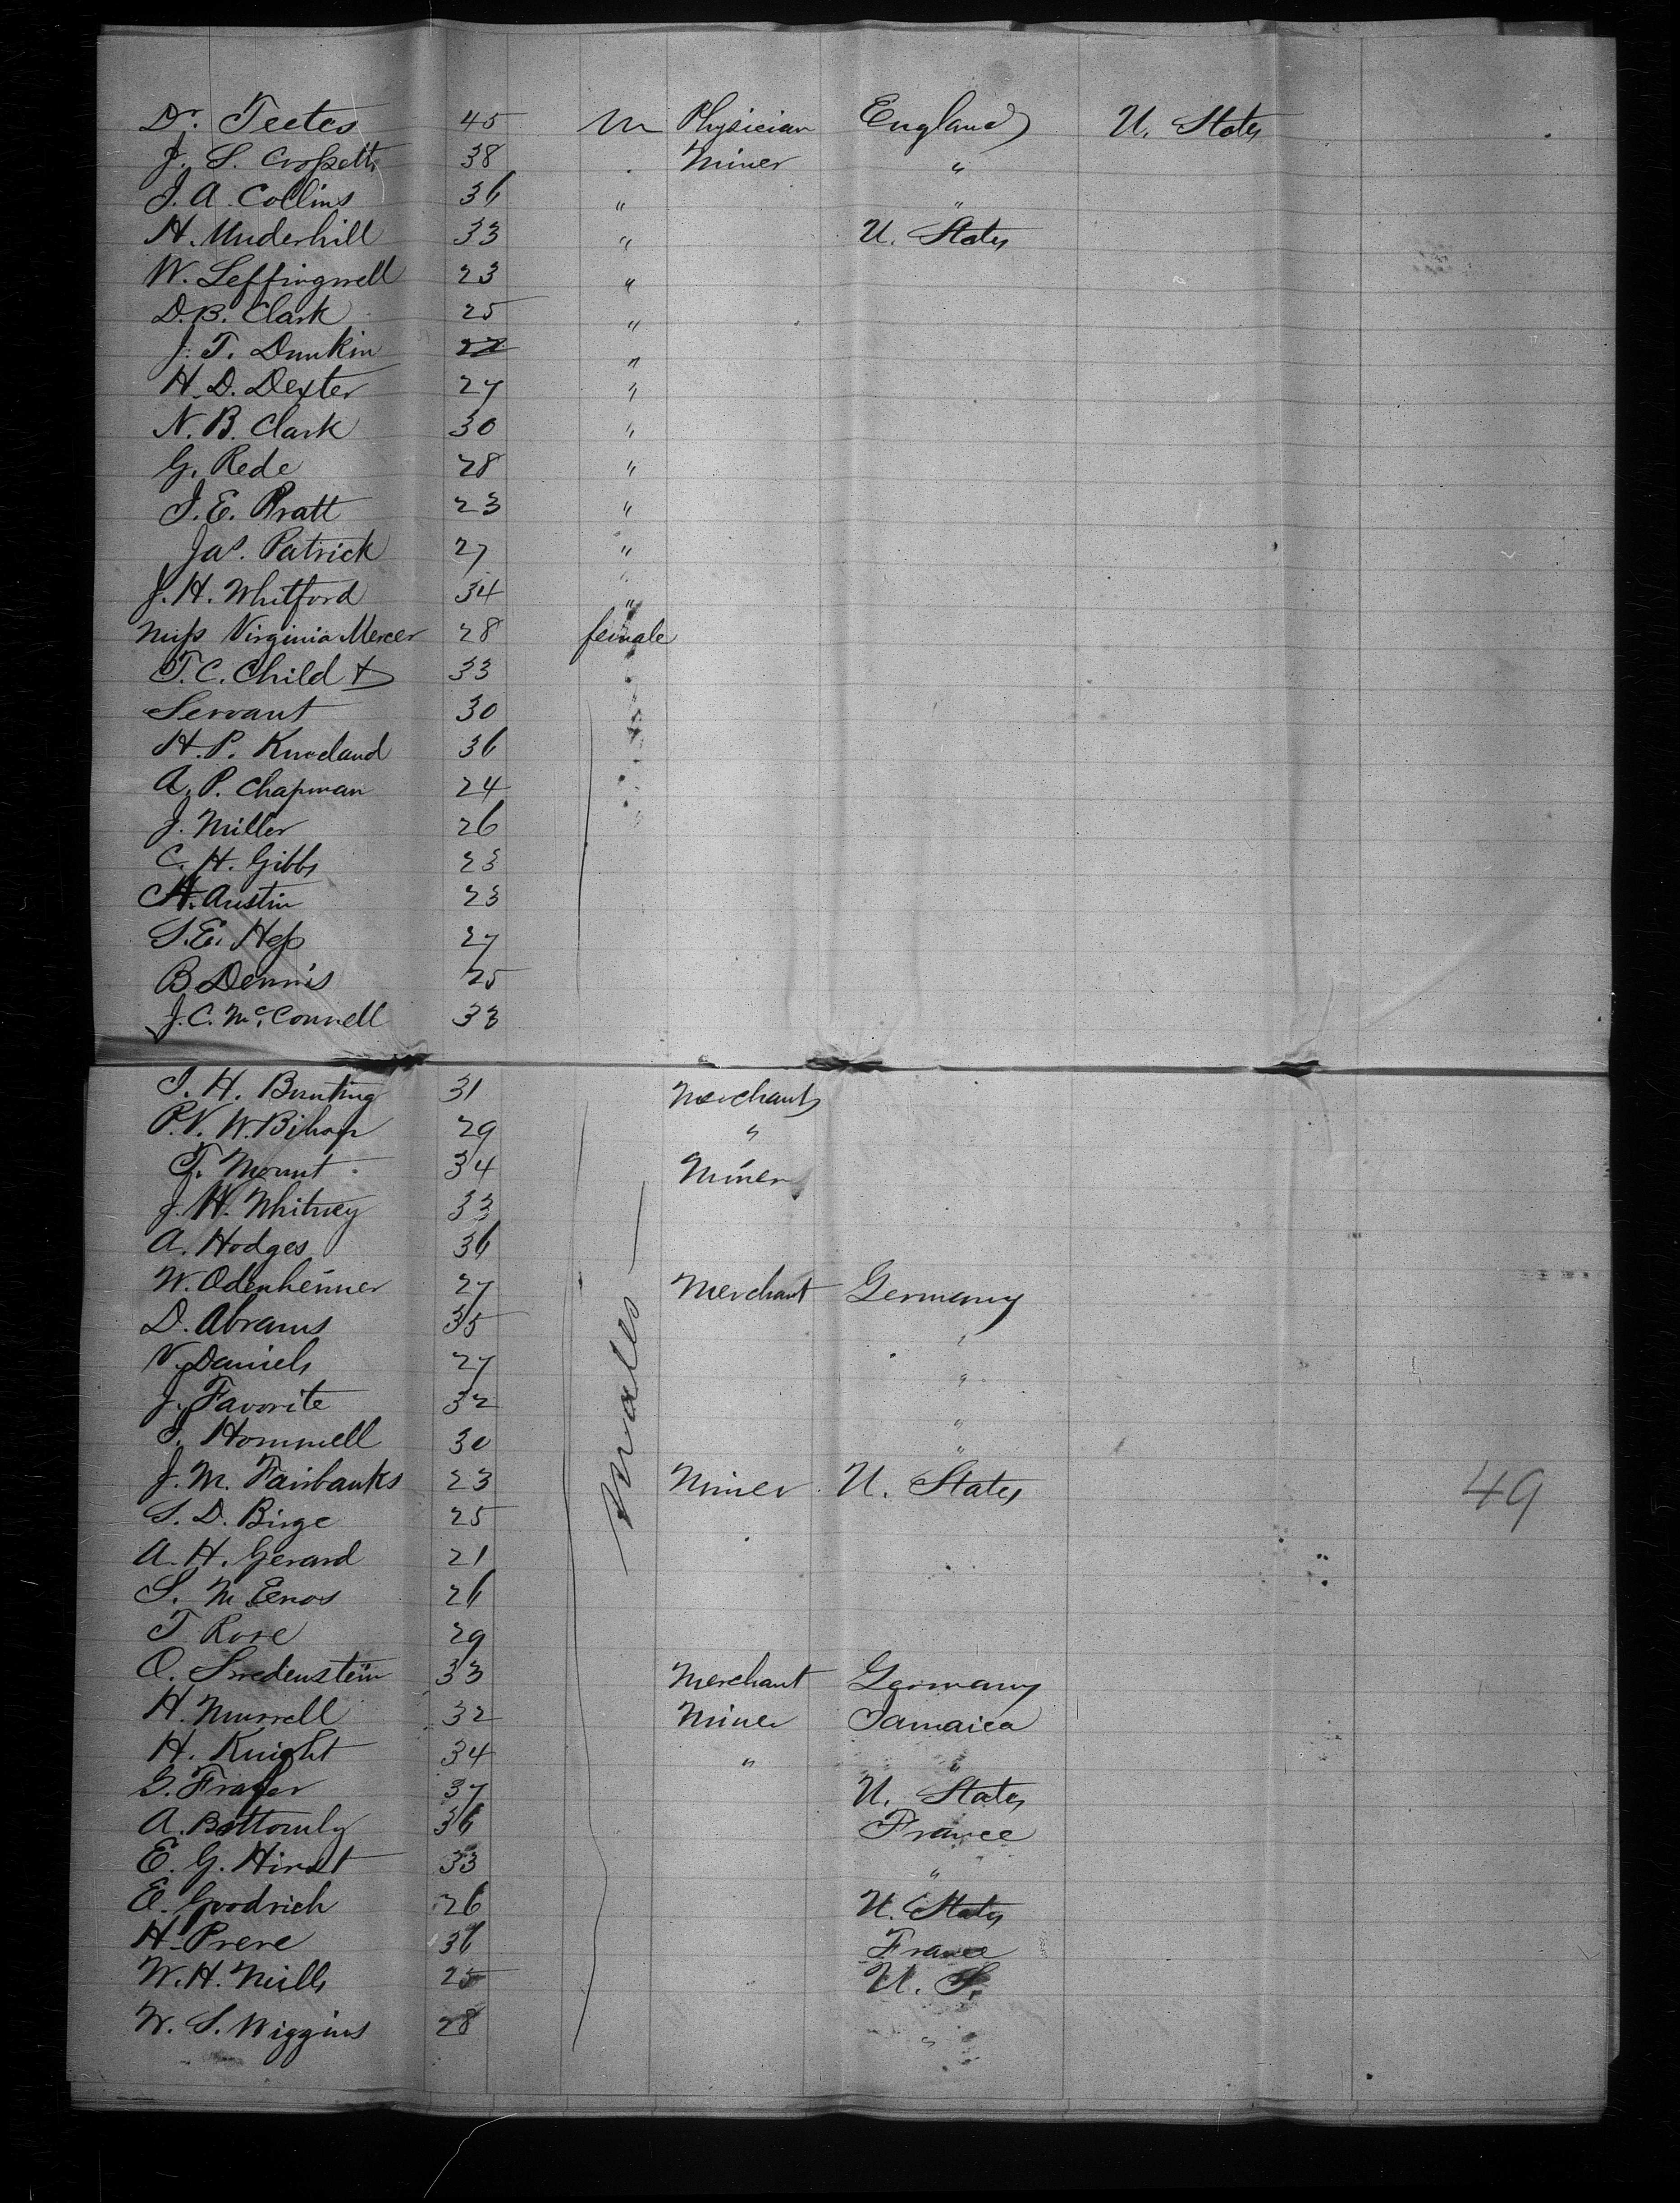 Dr. Teetes 45 M Physician England U. States
J. S. Crossett 38 Miner "
J. A. Collins 36 " "
H. Underhill 33 " U. States
W. Leffingwell 23 "
D. B. Clark 25 "
J. T. Dunkin 22 "
H. D. Dexter 27 "
N. B. Clark 30 "
G. Rede 28 "
J. E. Pratt 23 "
Jas. Patrick 27 "
J. H. Whitford 34 "
Miss Virginia Mercer 28 female
T. C. Child &
33
Servant 30
H. P. Kneeland 36
A. P. Chapman 24
J. Miller 26
C. H. Gibbs 23
H. Austin 23
S. E. Hess 27
B Dennis 25
J. C. McConnell 33
J. H. Bunting 31 Merchants
P. V. W. Bihop 29 "
T. Mount 34 Miner
J. H. Whitney 33
A. Hodges 36
W. Odenheimer 27 Merchant Germany
D. Abrams 35 "
V. Daniels 27 "
J. Favorite 32 "
J. Hommell 30 "
Males
J. M. Fairbanks 23 Miner U. States
49
S. D. Birge 25
A. H. Gerard 21
S. M Enos 26
T Rose 29
O. Swedenstein 33 Merchant Germany
H. Murrell 32 Miner Jamaica
H. Knight 34 " "
G. Fraser 37 U. States
A. Bottomly 36 France
E. G. Hirst 33 "
E. Goodrich 26 U. States
H. Prere 36 France
W. H. Mills 25 U. S.
W. S. Wiggins 28 "